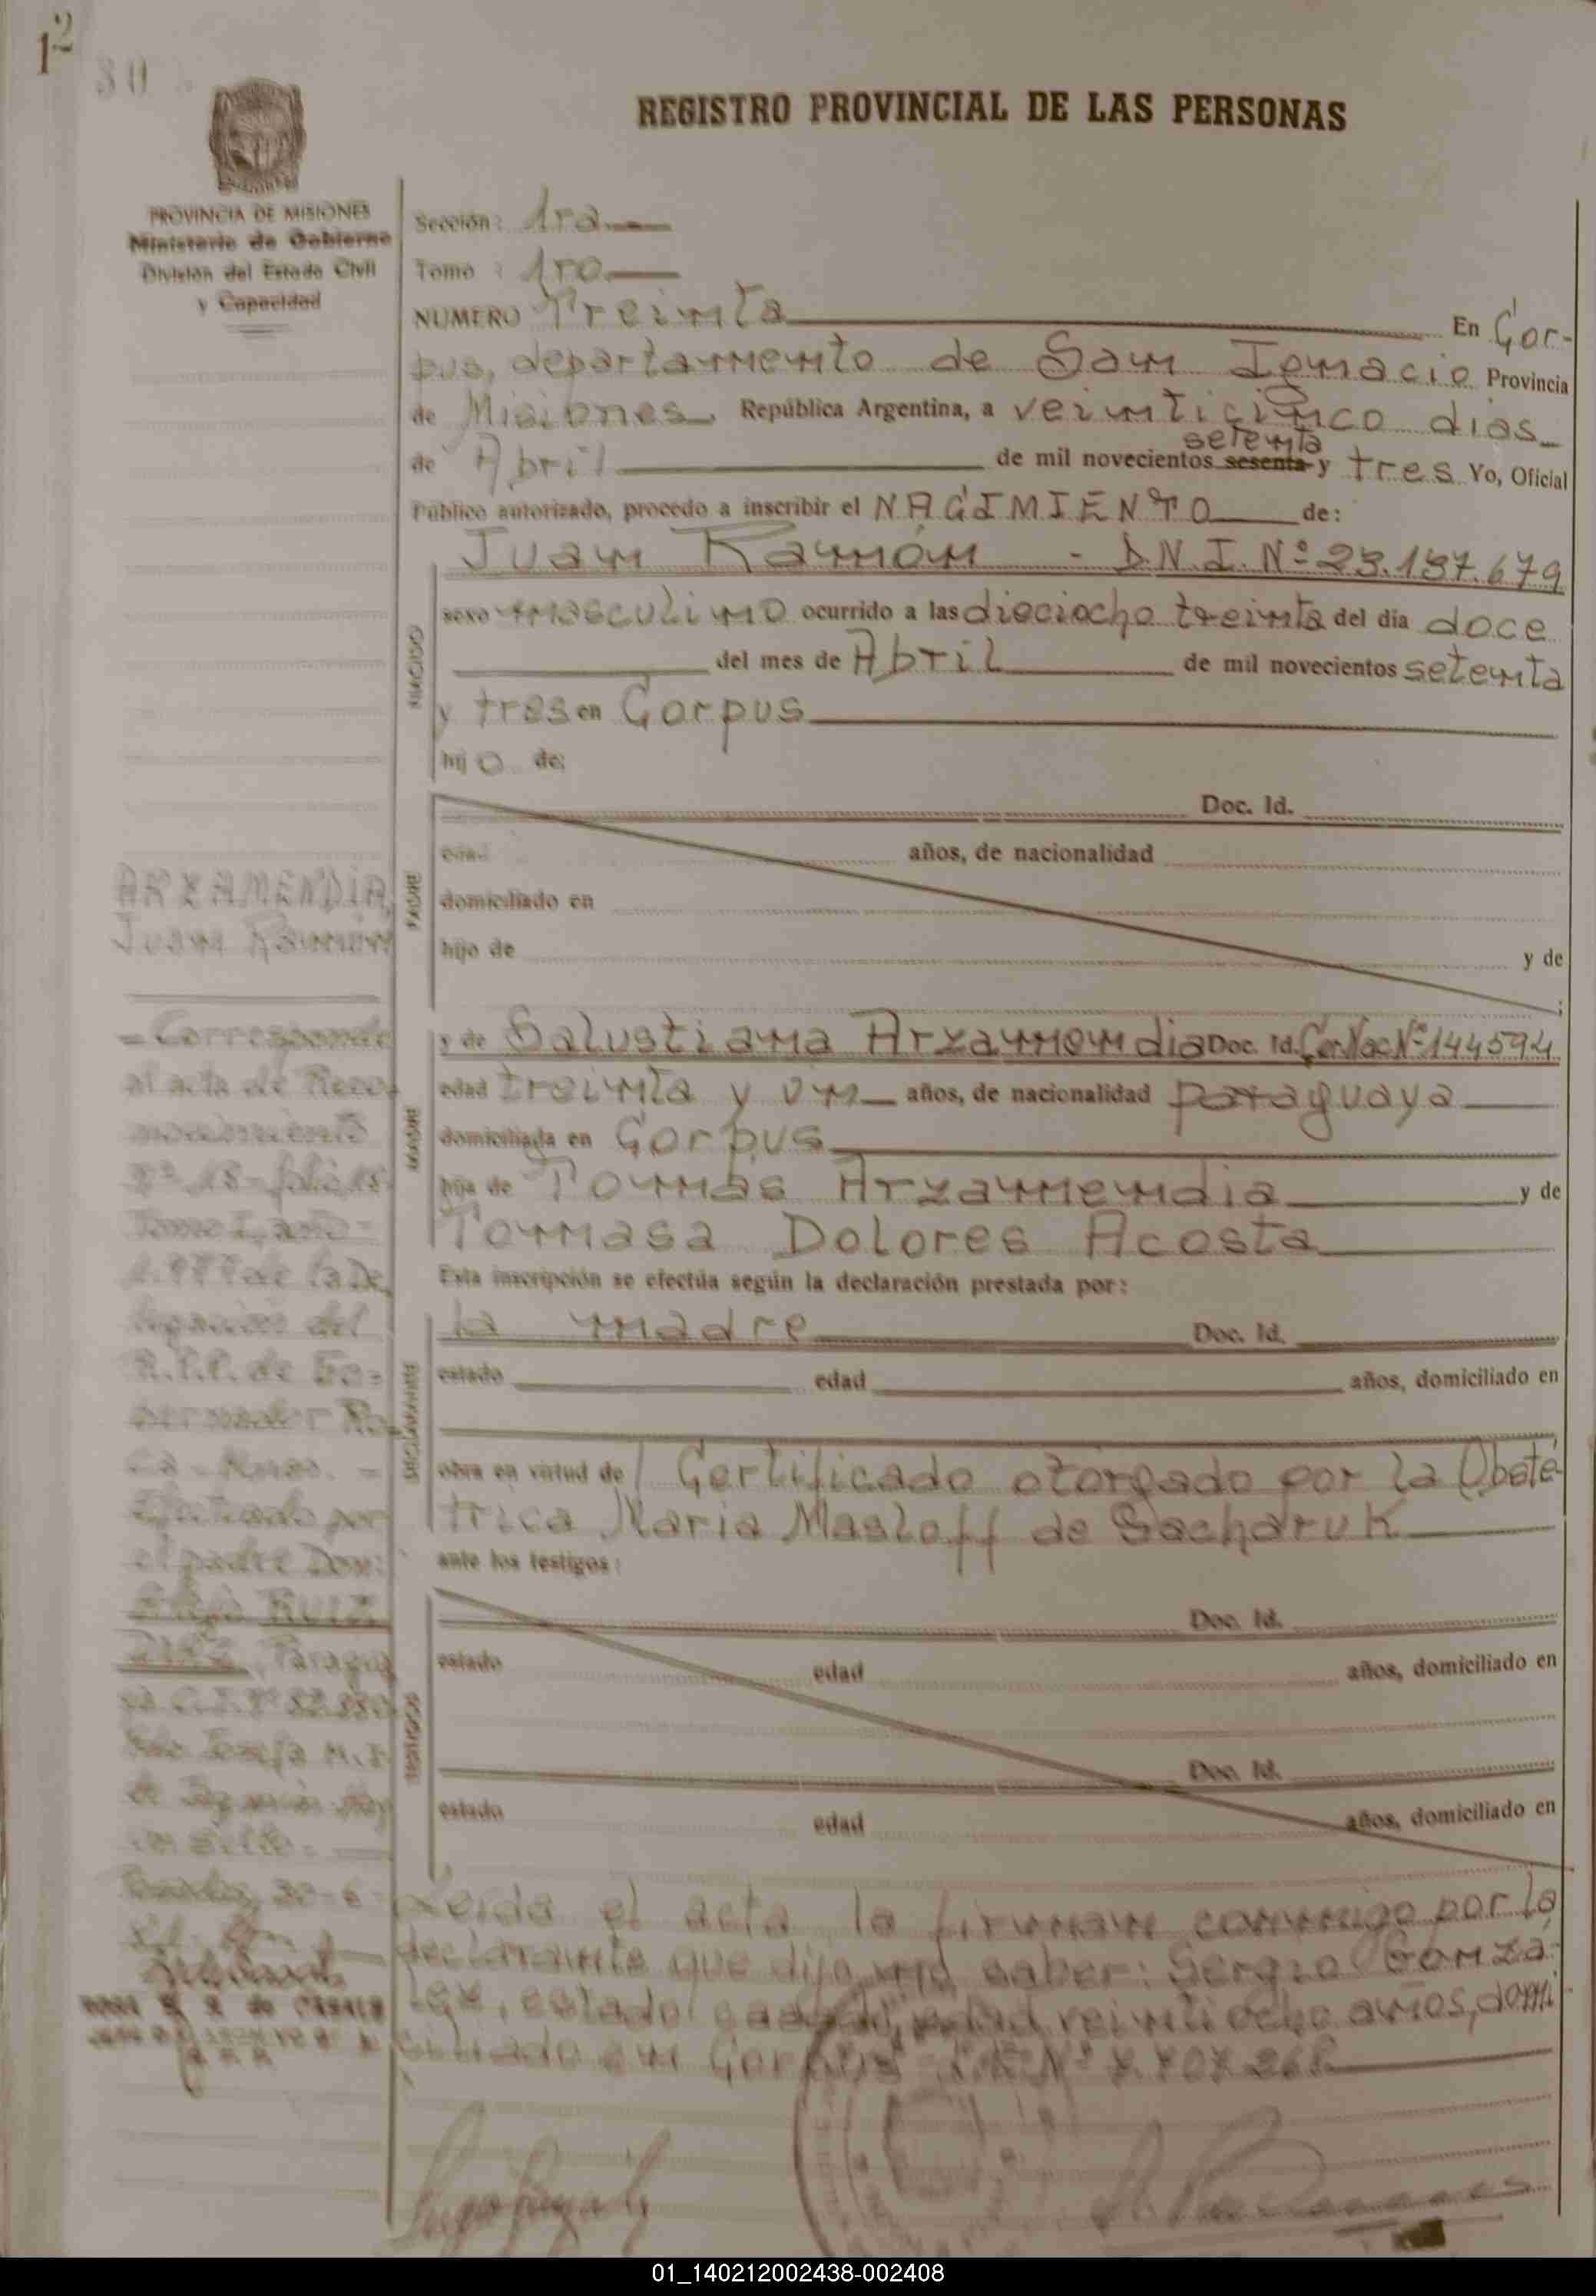 12
30
REGISTRO PROVINCIAL DE LAS PERSONAS
PROVINCIA DE MISIONES
Ministerio de Gobierno
División del Estado Civil
y Capacidad
Sección: 1ra
Tomo : 1ro
NUMERO Treinta En Cor-
pus, departamento de San Ignacio Provincia
de Misiones República Argentina, a veinticinco dias
setenta
de Abril de mil novecientos sesenta y tres Yo, Oficial
Público autorizado, procedo a inscribir el NACIMIENTO de:
Juan Ramón - D.N.I. Nº 23.137.679
NACIDO
sexo masculino ocurrido a las dieciocho treinta del día doce
del mes de Abril de mil novecientos setenta
y tres en Corpus
hijo de:
PADRE
Doc. Id.
edad años, de nacionalidad
domiciliado en
hijo de y de
ARZAMENDIA,
Juan Ramón
MADRE
y de Salustiana Arzamendia Doc. Id. Cer. Nac Nº 144594
edad treinta y un años, de nacionalidad paraguaya
domiciliada en Corpus
hija de Tomás Arzamendia y de
Tomasa Dolores Acosta
Esta inscripción se efectúa según la declaración prestada por:
DECLARANTE
la madre Doc. Id.
estado edad años, domiciliado en
obra en virtud de Certificado otorgado por la Obsté-
trica Maria Masloff de Sacharuk
ante los testigos:
TESTIGOS
Doc. Id.
estado edad años, domiciliado en
Doc. Id.
estado edad años, domiciliado en
- Corresponde
al acta de Reco-
nocimiento
Nº 18 - folio 18
Tomo I, año
1.977 de la De
legación del
R.P.P. de Go-
bernador Ro-
ca - Mnes. -
Efectuado por
el padre Don:
RUIZ
DIAZ, Paragua
Leida el acta la firman conmigo por la
declarante que dijo no saber: Sergio Gonzá-
lez, estado casado, edad veintiocho años, domi
ciliado en Corpus
01_140212002438-002408